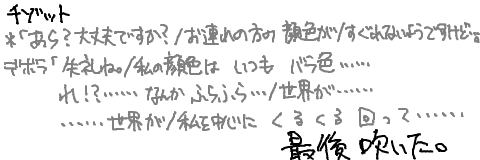 チゾット
*「あら?大丈夫ですか?/お連れの方の 顔色が/すぐれないようですけど…。
デボラ「失礼ね。/私の顔色は いつも バラ色……
れ!?……なんか ふらふら…/世界が……
……世界が/私を中心に くるくる 回って……
最後 吹いた。